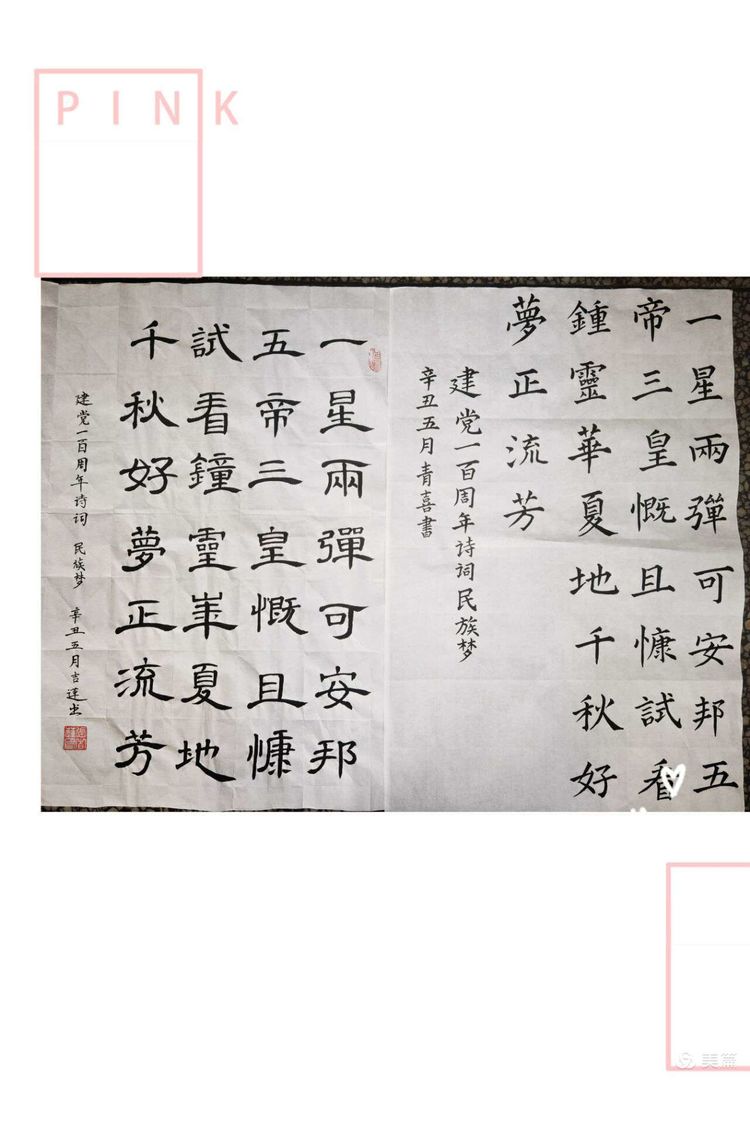 PINK
一星兩彈可安邦
五帝三皇慨且慷
試看鐘靈華夏地
千秋好夢正流芳
建党一百周年诗词 民族梦 辛丑五月吉莲书
一星兩彈可安邦五
帝三皇慨且慷試看
鍾靈華夏地千秋好
夢正流芳
建党一百周年诗词民族梦
辛丑五月青喜書
美篇